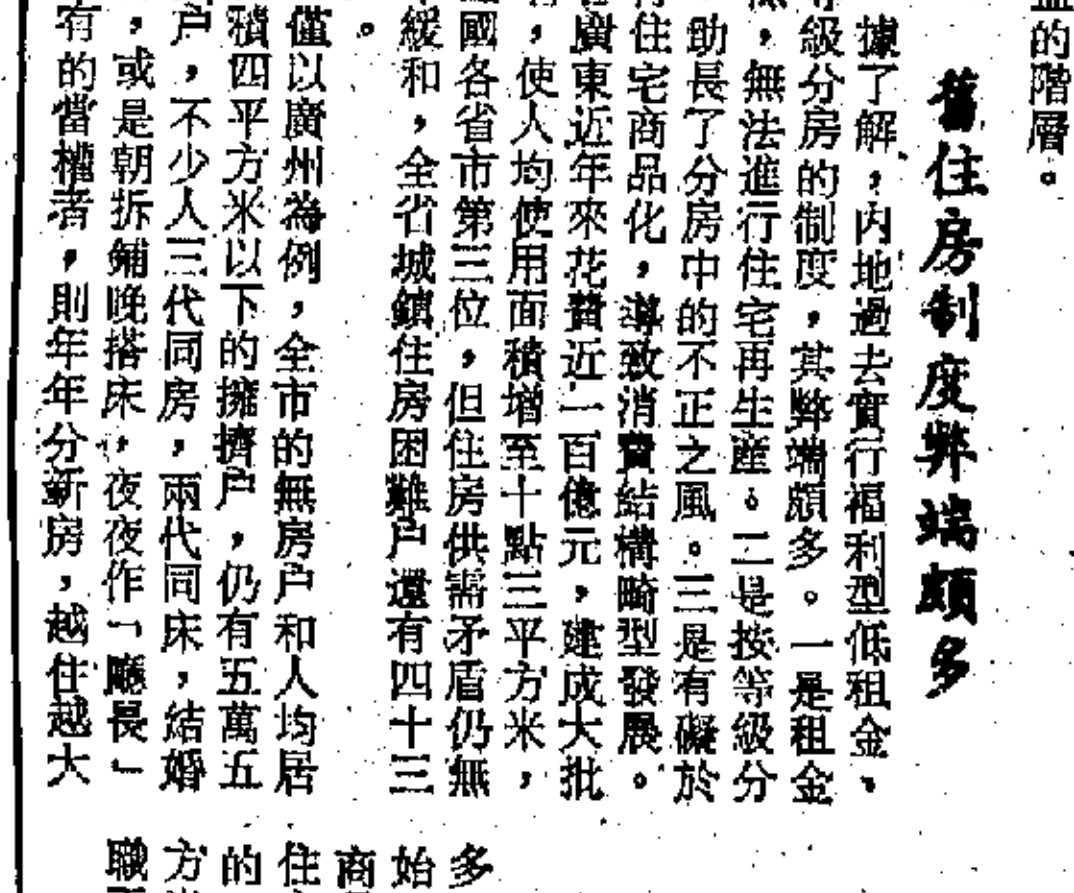 的階層。
舊住房制度弊端頗多
據了解，內地過去實行福利型低租金、
級分房的制度，其弊端頗多。一是租金
，無法進行住宅再生産。二是按等級分
助長了分房中的不正之風。三是有礙於
住宅商品化，導致消費結構畸型發展。
廣東近年來花費近一百億元，建成大批
，使人均使用面積增至十點三平方米，
國各省市第三位，但住房供需矛盾仍無
緩和，全省城鎮住房困難戶還有四十三
。
僅以廣州為例，全市的無房户和人均居
積四平方米以下的擁擠户，仍有五萬五
户，不少人三代同房，兩代同床，結婚
，或是朝拆鋪晚搭床，夜夜作「廳長」
有的當權者，則年年分新房，越住越大
多
始
商
住
的
方
職